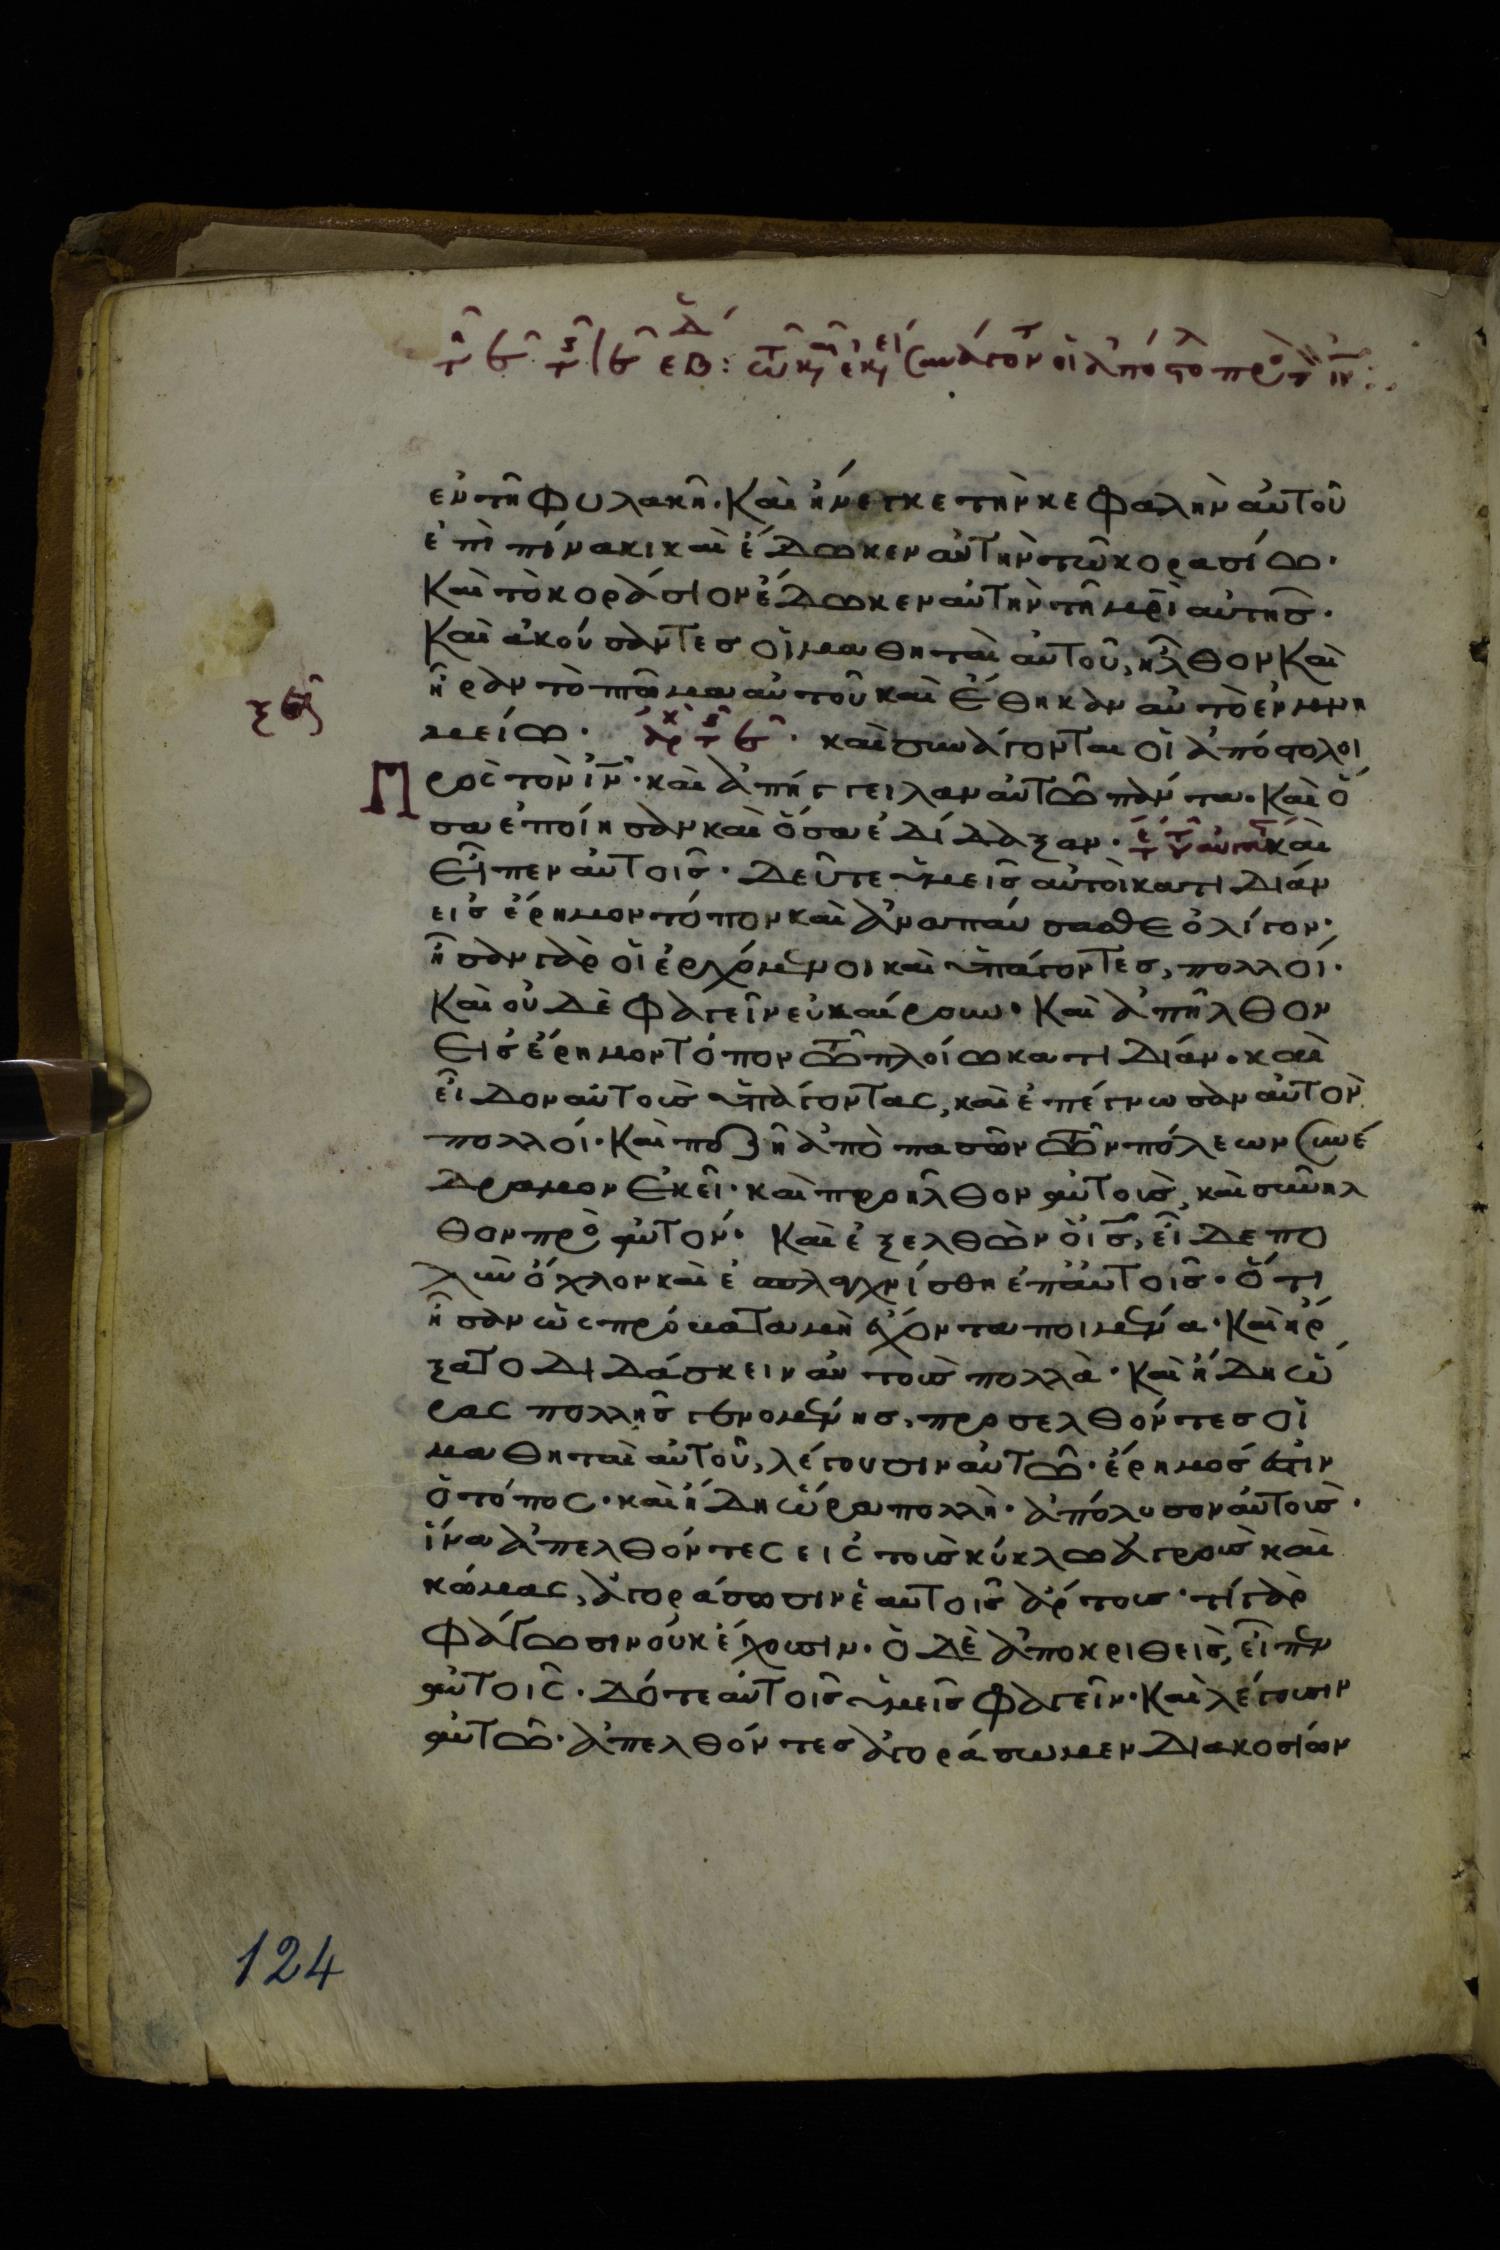 ἐν τῆ φυλακῆ. Καὶ ἤνεγκε τὴν κεφαλὴν αὐτοῦ
ἐπὶ πίνακι καὶ ἔδωκεν αὐτὴν τῶ κορασίω.
Καὶ τὸ κοράσιον ἔδωκεν αὐτὴν τῆ μρὶ αὐτῆσ.
Καὶ ἀκούσαντεσ οἱ μαθηταὶ αὐτοῦ, ἦλθον Καὶ
ἦραν τὸ πτῶμα αὐτοῦ καὶ ἔθηκαν αὐτὸ ἐν μνη
μείω. καὶ συνάγονται οἱ ἀπόστολοι
Προς τὸν ἰν. καὶ ἀπήγγειλαν αὐτῶ πάντα. Καὶ ὅ
σα ἐποίησαν καὶ ὅσα ἐδίδαξαν. καὶ
Εἶπεν αὐτοῖσ. Δεῦτε ὑμεῖσ αὐτοὶ κατιδίαν
εισ ἔρημον τόπον καὶ ἀναπαύσασθε ὀλίγον.
ἦσαν γὰρ οἱ ἐρχόμενοι καὶ ὑπάγοντεσ, πολλοί.
Καὶ οὐδὲ φαγεῖν εὐκαίρουν. Καὶ ἀπῆλθον
Εἰσ ἔρημον τόπον τῶ πλοίω κατιδίαν. καὶ
εἶδον αὐτοὺσ ὑπάγοντας, καὶ ἐπέγνωσαν αὐτὸν
πολλοί. Καὶ πεζῆ ἀπὸ πασῶν τῶν πόλεων συνέ
δραμον Ἐκεῖ. καὶ προῆλθον αὐτοὺσ, καὶ συνῆλ
θον πρὸ αὐτόν. Καὶ ἐξελθὼν ὁ ισ, εἶδε πο
λὺν ὄχλον καὶ ἐσπλαγχνίσθη ἐπαὐτοῖσ. Ὅτι
ἦσαν ὡς πρόβατα μὴ ἔχοντα ποιμένα. Καὶ ἤρ
ξατο διδάσκειν αὐτοὺσ πολλὰ. Καὶ ἤδη ὥ
ρας πολλῆσ γενομένησ, προσελθόντεσ οἱ
μαθηταὶ αὐτοῦ, λέγουσιν αὐτῶ. ἔρημοσ ἐστιν
ὁ τόπος. καὶ ἤδη ὥρα πολλὴ. ἀπόλυσον αὐτοὺσ.
ἵνα ἀπελθόντες εις τοὺσ κύκλω ἀγροὺσ καὶ
κώμας, ἀγοράσωσιν ἑαυτοῖσ ἄρτουσ. τί γὰρ
φάγωσιν οὐκ ἔχουσιν. ὁ δὲ ἀποκριθεὶσ, εἶπεν
αὐτοῖς. δότε αὐτοῖσ ὑμεῖσ φαγεῖν. Καὶ λέγουσιν
αὐτῶ. ἀπελθόντεσ ἀγοράσωμεν διακοσίων
124